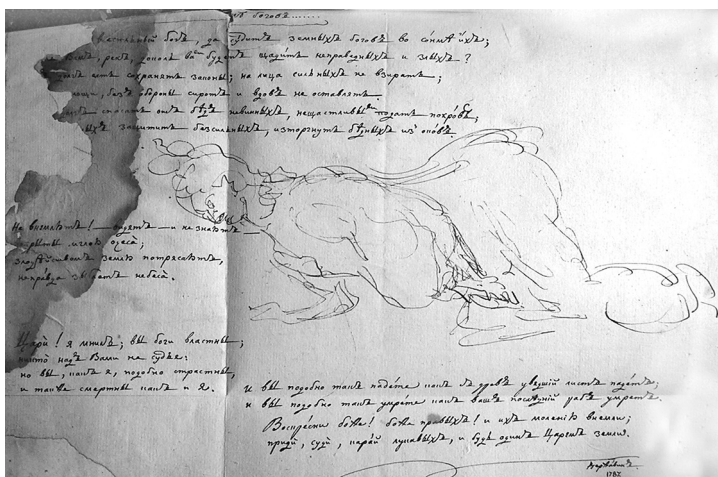 боговъ......
богъ, да судитъ земныхъ боговъ во сонмѣ ихъ;
рекъ, доколѣ вамъ будетъ щадить неправедныхъ и злыхъ?
есть сохранять законы; на лица сильныхъ не взирать;
безъ обороны сиротъ и вдовъ не оставлять.
спасать отъ бѣдъ невинныхъ, нещастливымъ подать покровъ;
защитить безсильныхъ, исторгнуть бѣдныхъ изъ оковъ.
Не внемлютъ! — видятъ — и не знаютъ
покрыты мглою очеса;
землю потрясаютъ,
неправда зыблетъ небеса.
Цари! я мнилъ; вы боги властны;
никто надъ Вами не судья:
но вы, какъ я, подобно страстны,
и также смертны какъ и я.
и вы подобно такъ падете какъ съ древъ увядшій листъ падетъ;
и вы подобно такъ умрете какъ вашъ послѣдній рабъ умретъ.
Воскресни боже! боже правыхъ! и ихъ моленію внемли;
приди, суди, карай лукавыхъ, и будь одинъ Царемъ земли.
Державинъ